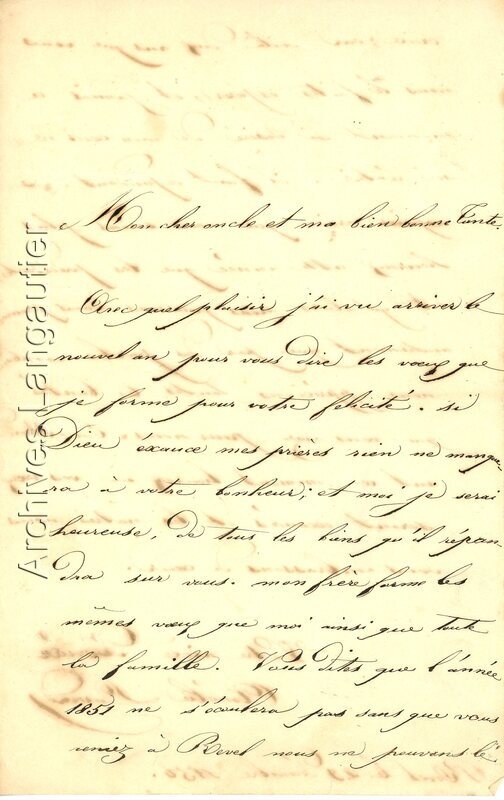 Mon cher oncle et ma bien bonne Tante.
Avec quel plaisir j'ai vu arriver le
nouvel an pour vous dire les vœux que
je forme pour votre felicité. si
Dieu éxauce mes prières rien ne manque
ra à votre bonheur; et moi je serai
heureuse, de tous les biens qu'il répan
dra sur vous. mon frère forme les
mêmes vœux que moi ainsi que toute
la famille. Vous dites que l'année
1851 ne s'écoulera pas sans que vous
veniez à Revel nous ne pouvons le
Archives Langautier